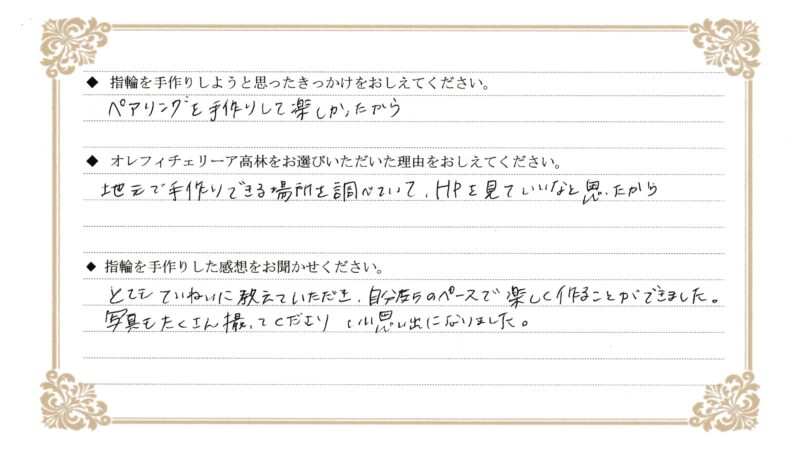 ◆ 指輪を手作りしようと思ったきっかけをおしえてください。
ペアリングを手作りして楽しかったから
◆ オレフィチェリーア高林をお選びいただいた理由をおしえてください。
地元で手作りできる場所を調べていて、HPを見ていいなと思ったから
◆ 指輪を手作りした感想をお聞かせください。
とてもていねいに教えていただき、自分たちのペースで楽しく作ることができました。
写真もたくさん撮ってくださり いい思い出になりました。